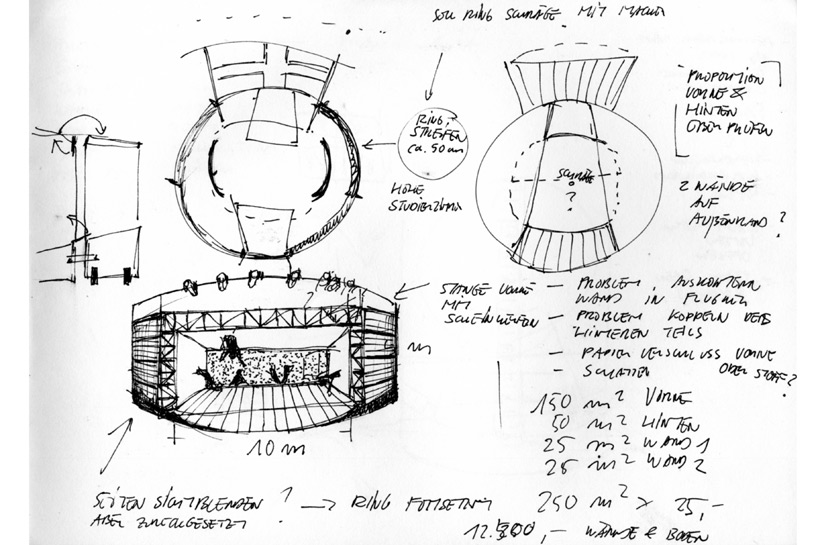 SOLL RING SCHRÄGE MIT MACHEN
PROPORTION
VORNE &
HINTEN
ÜBERPRÜFEN
RING,
STREIFEN
ca. 50 cm
HÖHE
STUDIERZIMMER
SCHRÄGE
?
2 WÄNDE
AUF
AUßENRAND ?
STANGE VORNE
MIT
SCHEINWERFERN
– PROBLEM, AUSKONTERN
WAND IN
– PROBLEM KOPPELN DES
HINTEREN TEILS
– PAPIER VERSCHLUSS VORNE
– SCHATTEN ODER STOFF ?
m
10 m
150 m² VORNE
50 m² HINTEN
25 m² WAND 1
25 m² WAND 2
SEITEN SICHTBLENDEN ? → RING FORTSETZUNG
ABER ZURÜCKGESETZT
250 m² × 25,–
12.500,– WÄNDE & BODEN